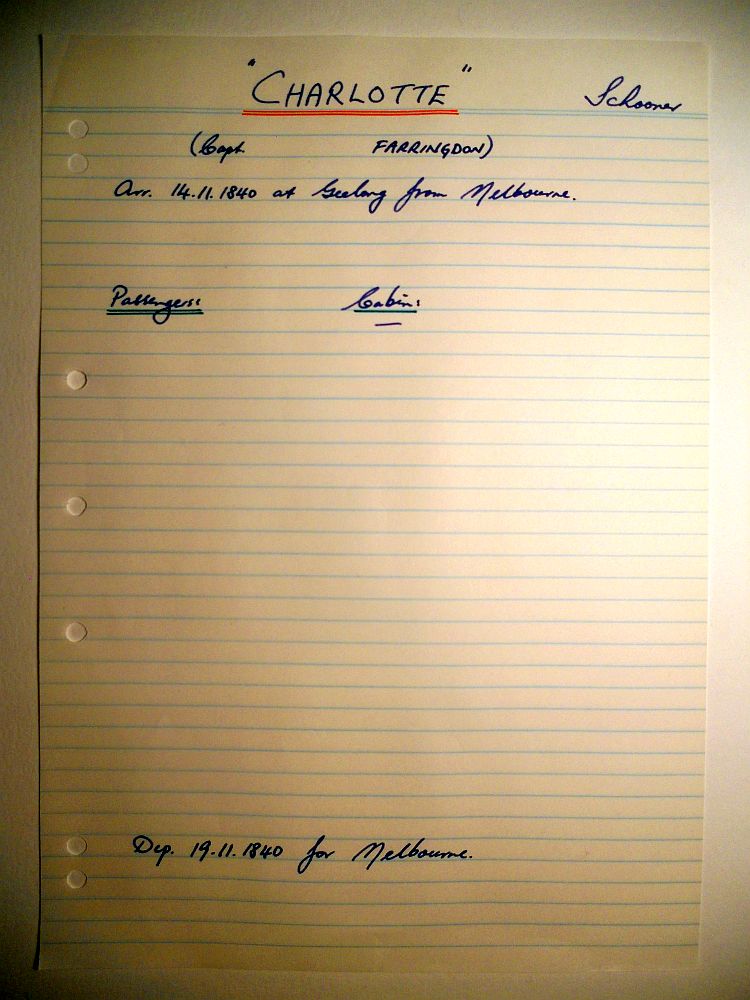 "CHARLOTTE" Schooner
(Capt. FARRINGDON)
Arr. 14.11.1840 at Geelong from Melbourne.
Passengers: Cabin:
—
Dep. 19.11.1840 for Melbourne.